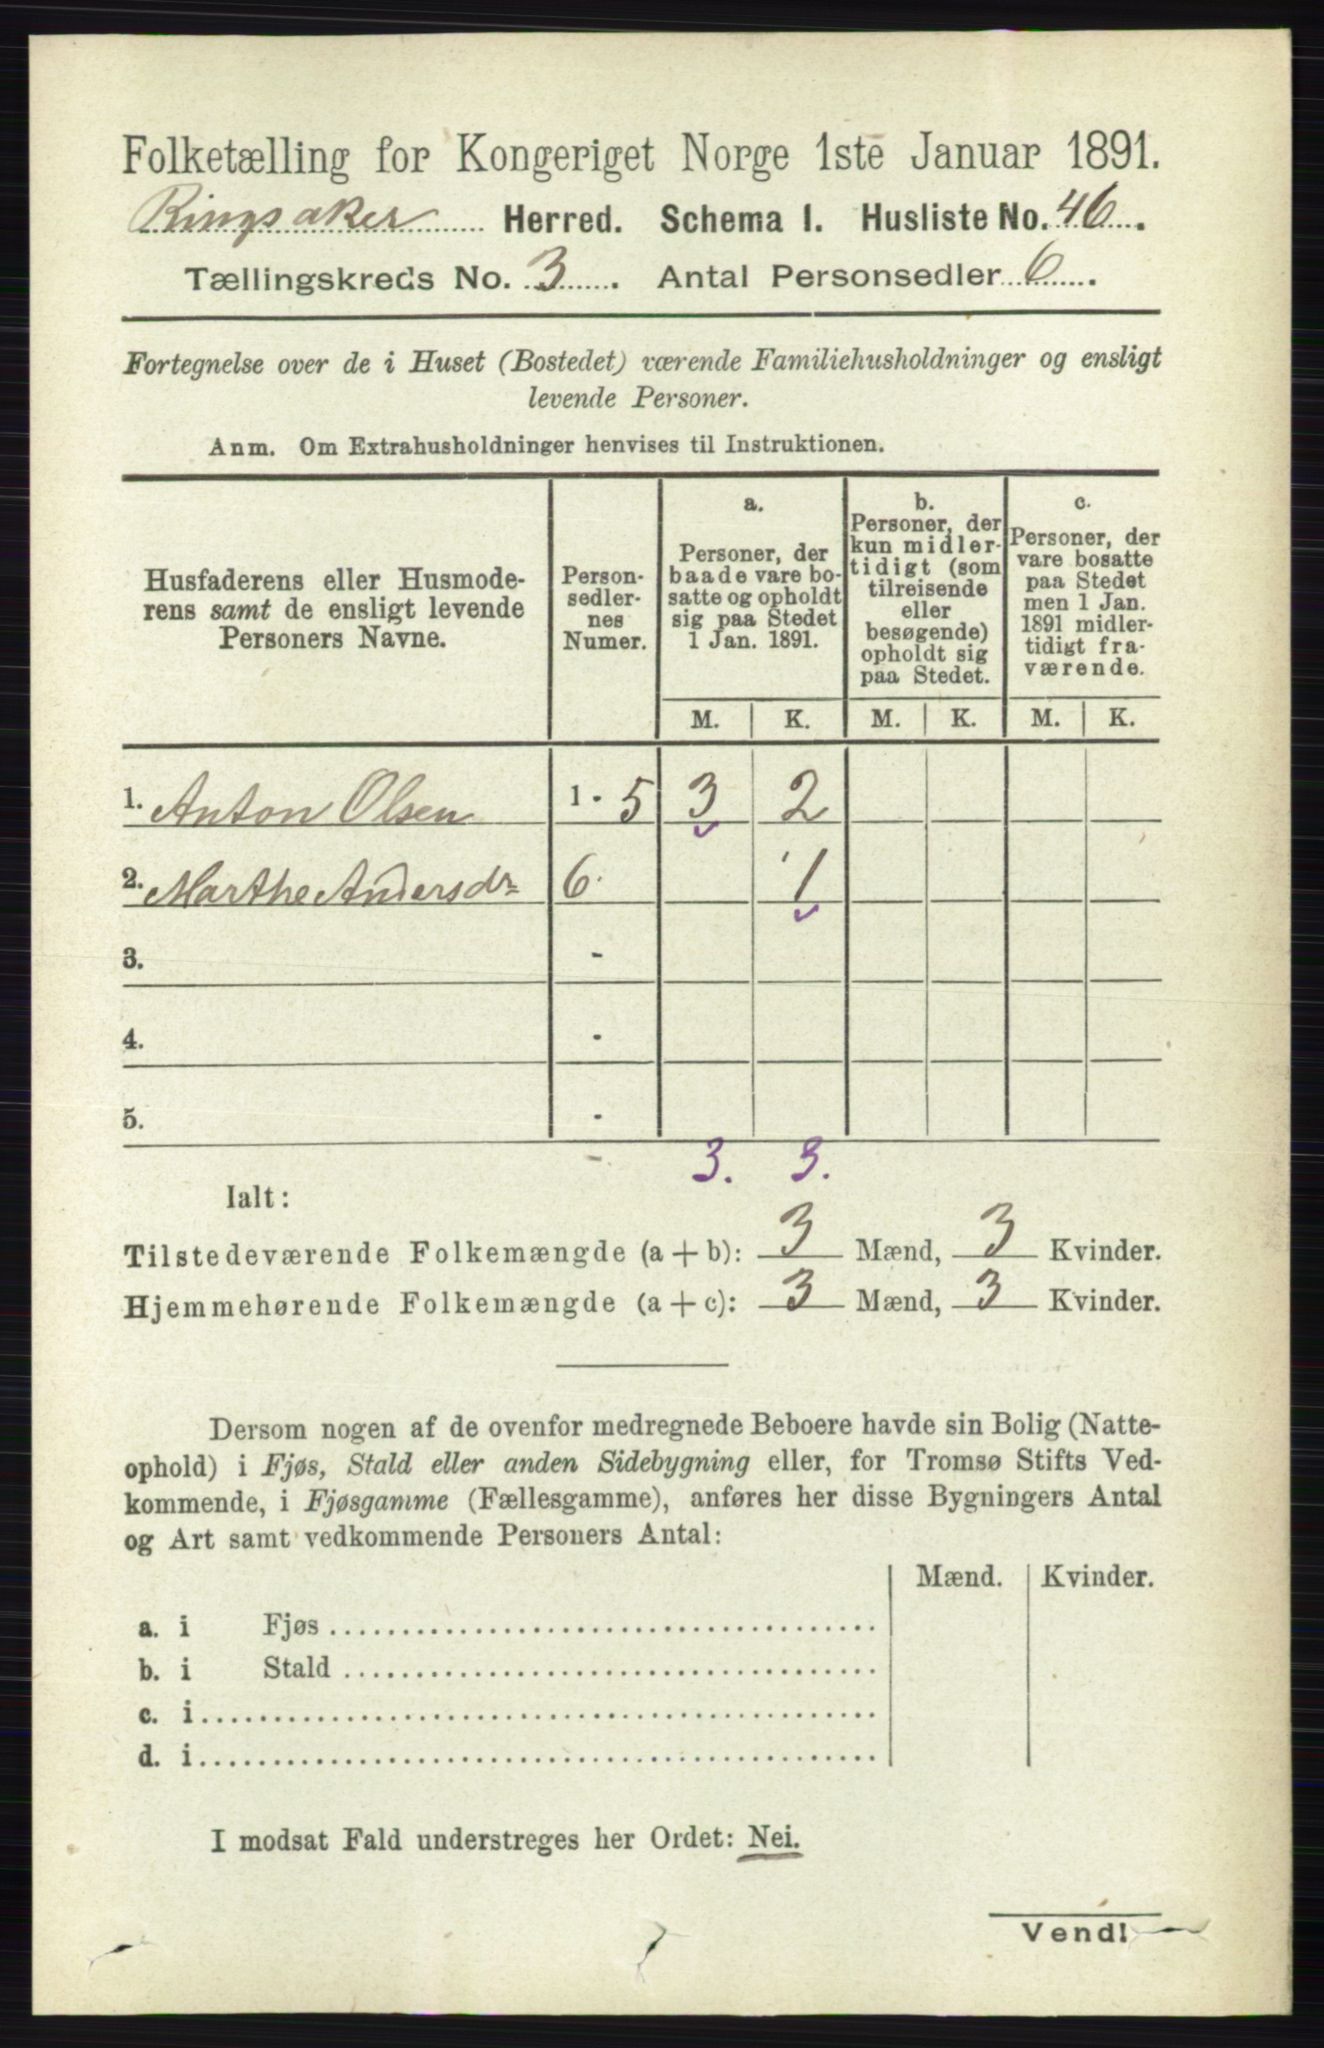 Folketælling for Kongeriget Norge 1ste Januar 1891.
Ringsaker Herred. Schema 1. Husliste No. 46.
Tællingskreds No. 3. Antal Personsedler 6.
Fortegnelse over de i Huset (Bostedet) værende Familiehusholdninger og ensligt
levende Personer.
Anm. Om Extrahusholdninger henvises til Instruktionen.
Husfaderens eller Husmode-
rens samt de ensligt levende
Personers Navne.
Person-
sedler-
nes
Numer.
a.
Personer, der
baade vare bo-
satte og opholdt
sig paa Stedet
1 Jan. 1891.
b.
Personer, der
kun midler-
tidigt (som
tilreisende
eller
besøgende)
opholdt sig
paa Stedet.
c.
Personer, der
vare bosatte
paa Stedet
men 1 Jan.
1891 midler-
tidigt fra-
værende.
M. K. M. K. M. K.
1. Anton Olsen 1 - 5 3 2
2. Marthe Andersdr 6. 1
3. -
4. -
5. -
3. 3.
Ialt:
Tilstedeværende Folkemængde (a + b): 3 Mænd, 3 Kvinder.
Hjemmehørende Folkemængde (a + c): 3 Mænd, 3 Kvinder.
Dersom nogen af de ovenfor medregnede Beboere havde sin Bolig (Natte-
ophold) i Fjøs, Stald eller anden Sidebygning eller, for Tromsø Stifts Ved-
kommende, i Fjøsgamme (Fællesgamme), anføres her disse Bygningers Antal
og Art samt vedkommende Personers Antal:
Mænd. Kvinder.
a. i Fjøs
b. i Stald
c. i
d. i
I modsat Fald understreges her Ordet: Nei.
Vend!